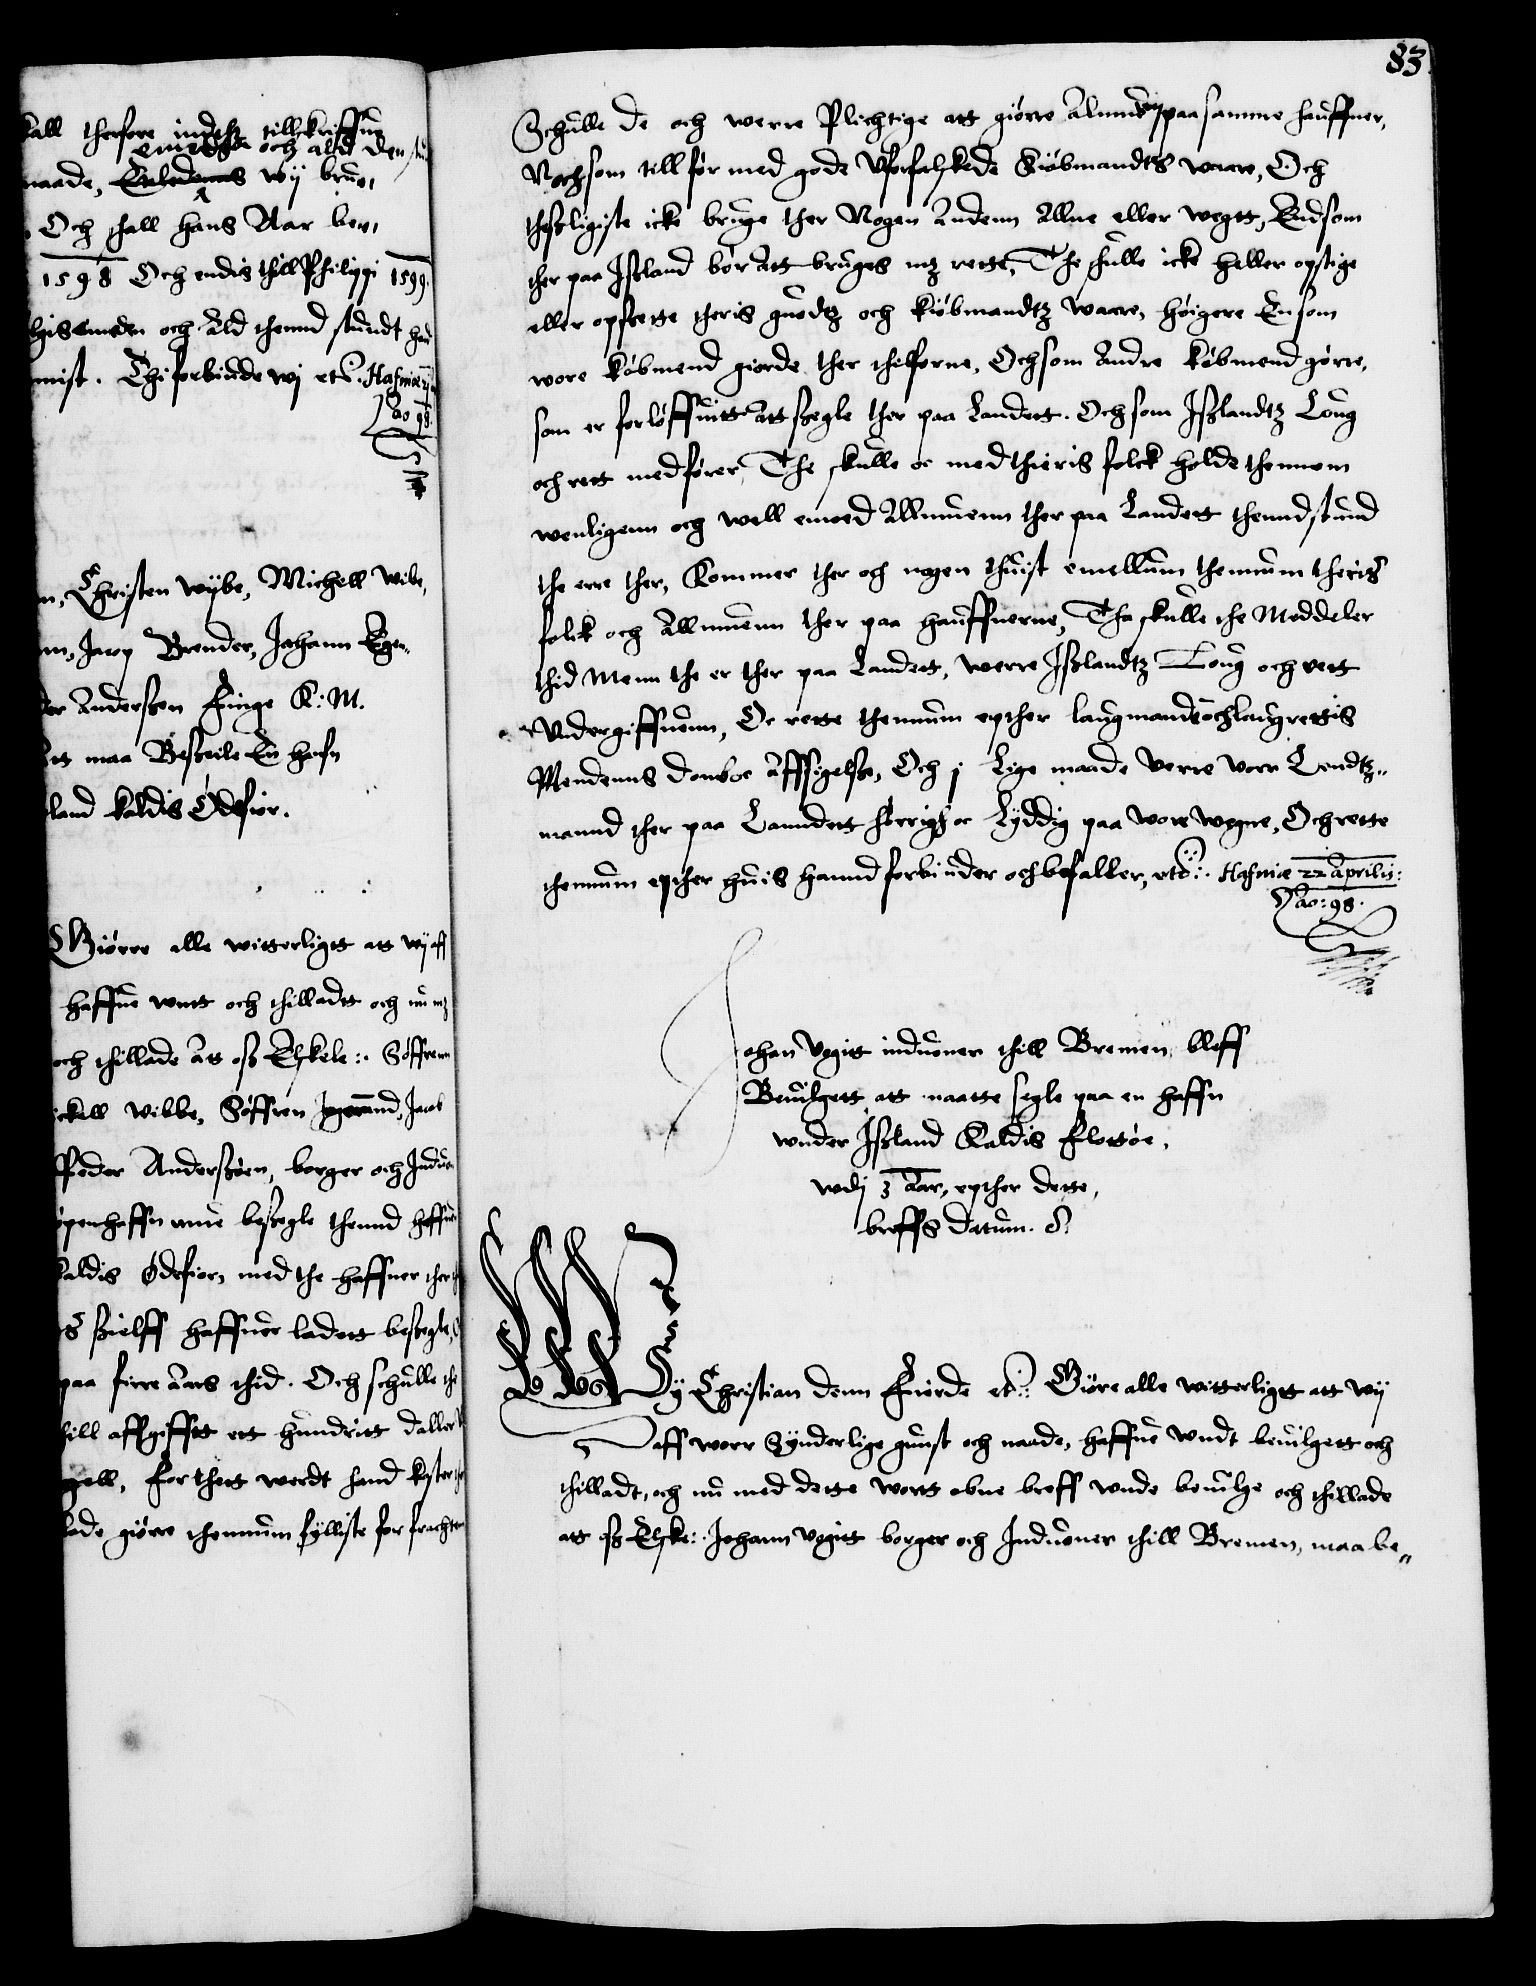 kall therfore indehs tillskriffue
emedens och aldt den stu
naade, Endedenns wij bruge
Och shall hans Aar ber,
1598 Och endis thill Philippi 1599.
emeden och Ald thennd stundt hand
mist. Thi forbiude wj etc. Hafniæ
Ao 98.
Christen Wybe, Michell Wibe,
Jacop Brender, Johann Egen
Anderssen finge K: M.
maa Besseile En hafn
land kaldis Ódefior.
Giørre alle witterligtt att wij aff
haffue wntt och thilladtt och nu mz
och thillade Att oss Elskele: Søffrenn
ickell Vibbe, Søffren Jgerand, Jacob
Peder Anderssøen, borger och Induo
øpenhaffn mue bessegle thennd haffue
kaldis Ódefiorn med the haffner ther
s sielff haffuer ladett bessegle,
paa firre Aars thid. Och schulle the
thill affgifftt ett hundritt daller
for thett werdt hand kyster
lade giørre thennum fylliste for frachten
83.
Schulle de och werre Plichtige att giørre Alnuuen paa samme hauffner,
Noch som till før med gode Uforfalskede Kiøbmandts waare, Och
thessligiste icke bruge ther Nogen Andenn Allne eller wegtt, End som
ther paa Issland bør Att bruges mz rette, The schulle icke heller opstige
eller opsette theris guodtz och kiøbmandtz Waare, høigere En som
wore købmend giorde ther thilforne, Och som Andre købmend gørre,
som er forløffuitt Att segle ther paa Landett. Och som Isslandtz Loug
och rett medfører, The skulle oc med thieris folck holde thennom
wenligenn och well emoed Allmuenn ther paa Landett thennd stund
the erre ther, Kommer ther och nogen thuist emellum thennum theris
folck och Allmuenn ther paa hauffnerne, Tha skulle the Meddeler
thid Menn the er ther paa Landett, werre Isslandtz Loug och rett
Vndergiffuenn, Oc rette thennum epther laugmandt och laugrettis
Mendenns domboc Affsigelse, Och j Lige maade verre vorr Lendtz-
mannd ther paa Lanndett hørrig oc Lyddig paa wore wegne, Och rette
thennum epther huis hannd forbiuder och befaller, etc. Hafniæ 22 Aprilis:
Ao: 98.
Johan Vogitt induoner thill Bremen, bleff
Beuilgett, att maatte segle paa en haffn
wnder Issland Kaldis Flottøe,
wdj 3 Aar, epther dette,
breffs datum.
Wij Christian denn Fierde etc: Giøre alle witterligtt att wij
aff worr Synderlige gunst och naade, haffue wndt beuilgett och
thilladt, och nu med dette wortt obne breff wnde beuilge och thillade
att oss Elske: Johann Vogitt borger och Induoner thill Bremen, maa be-